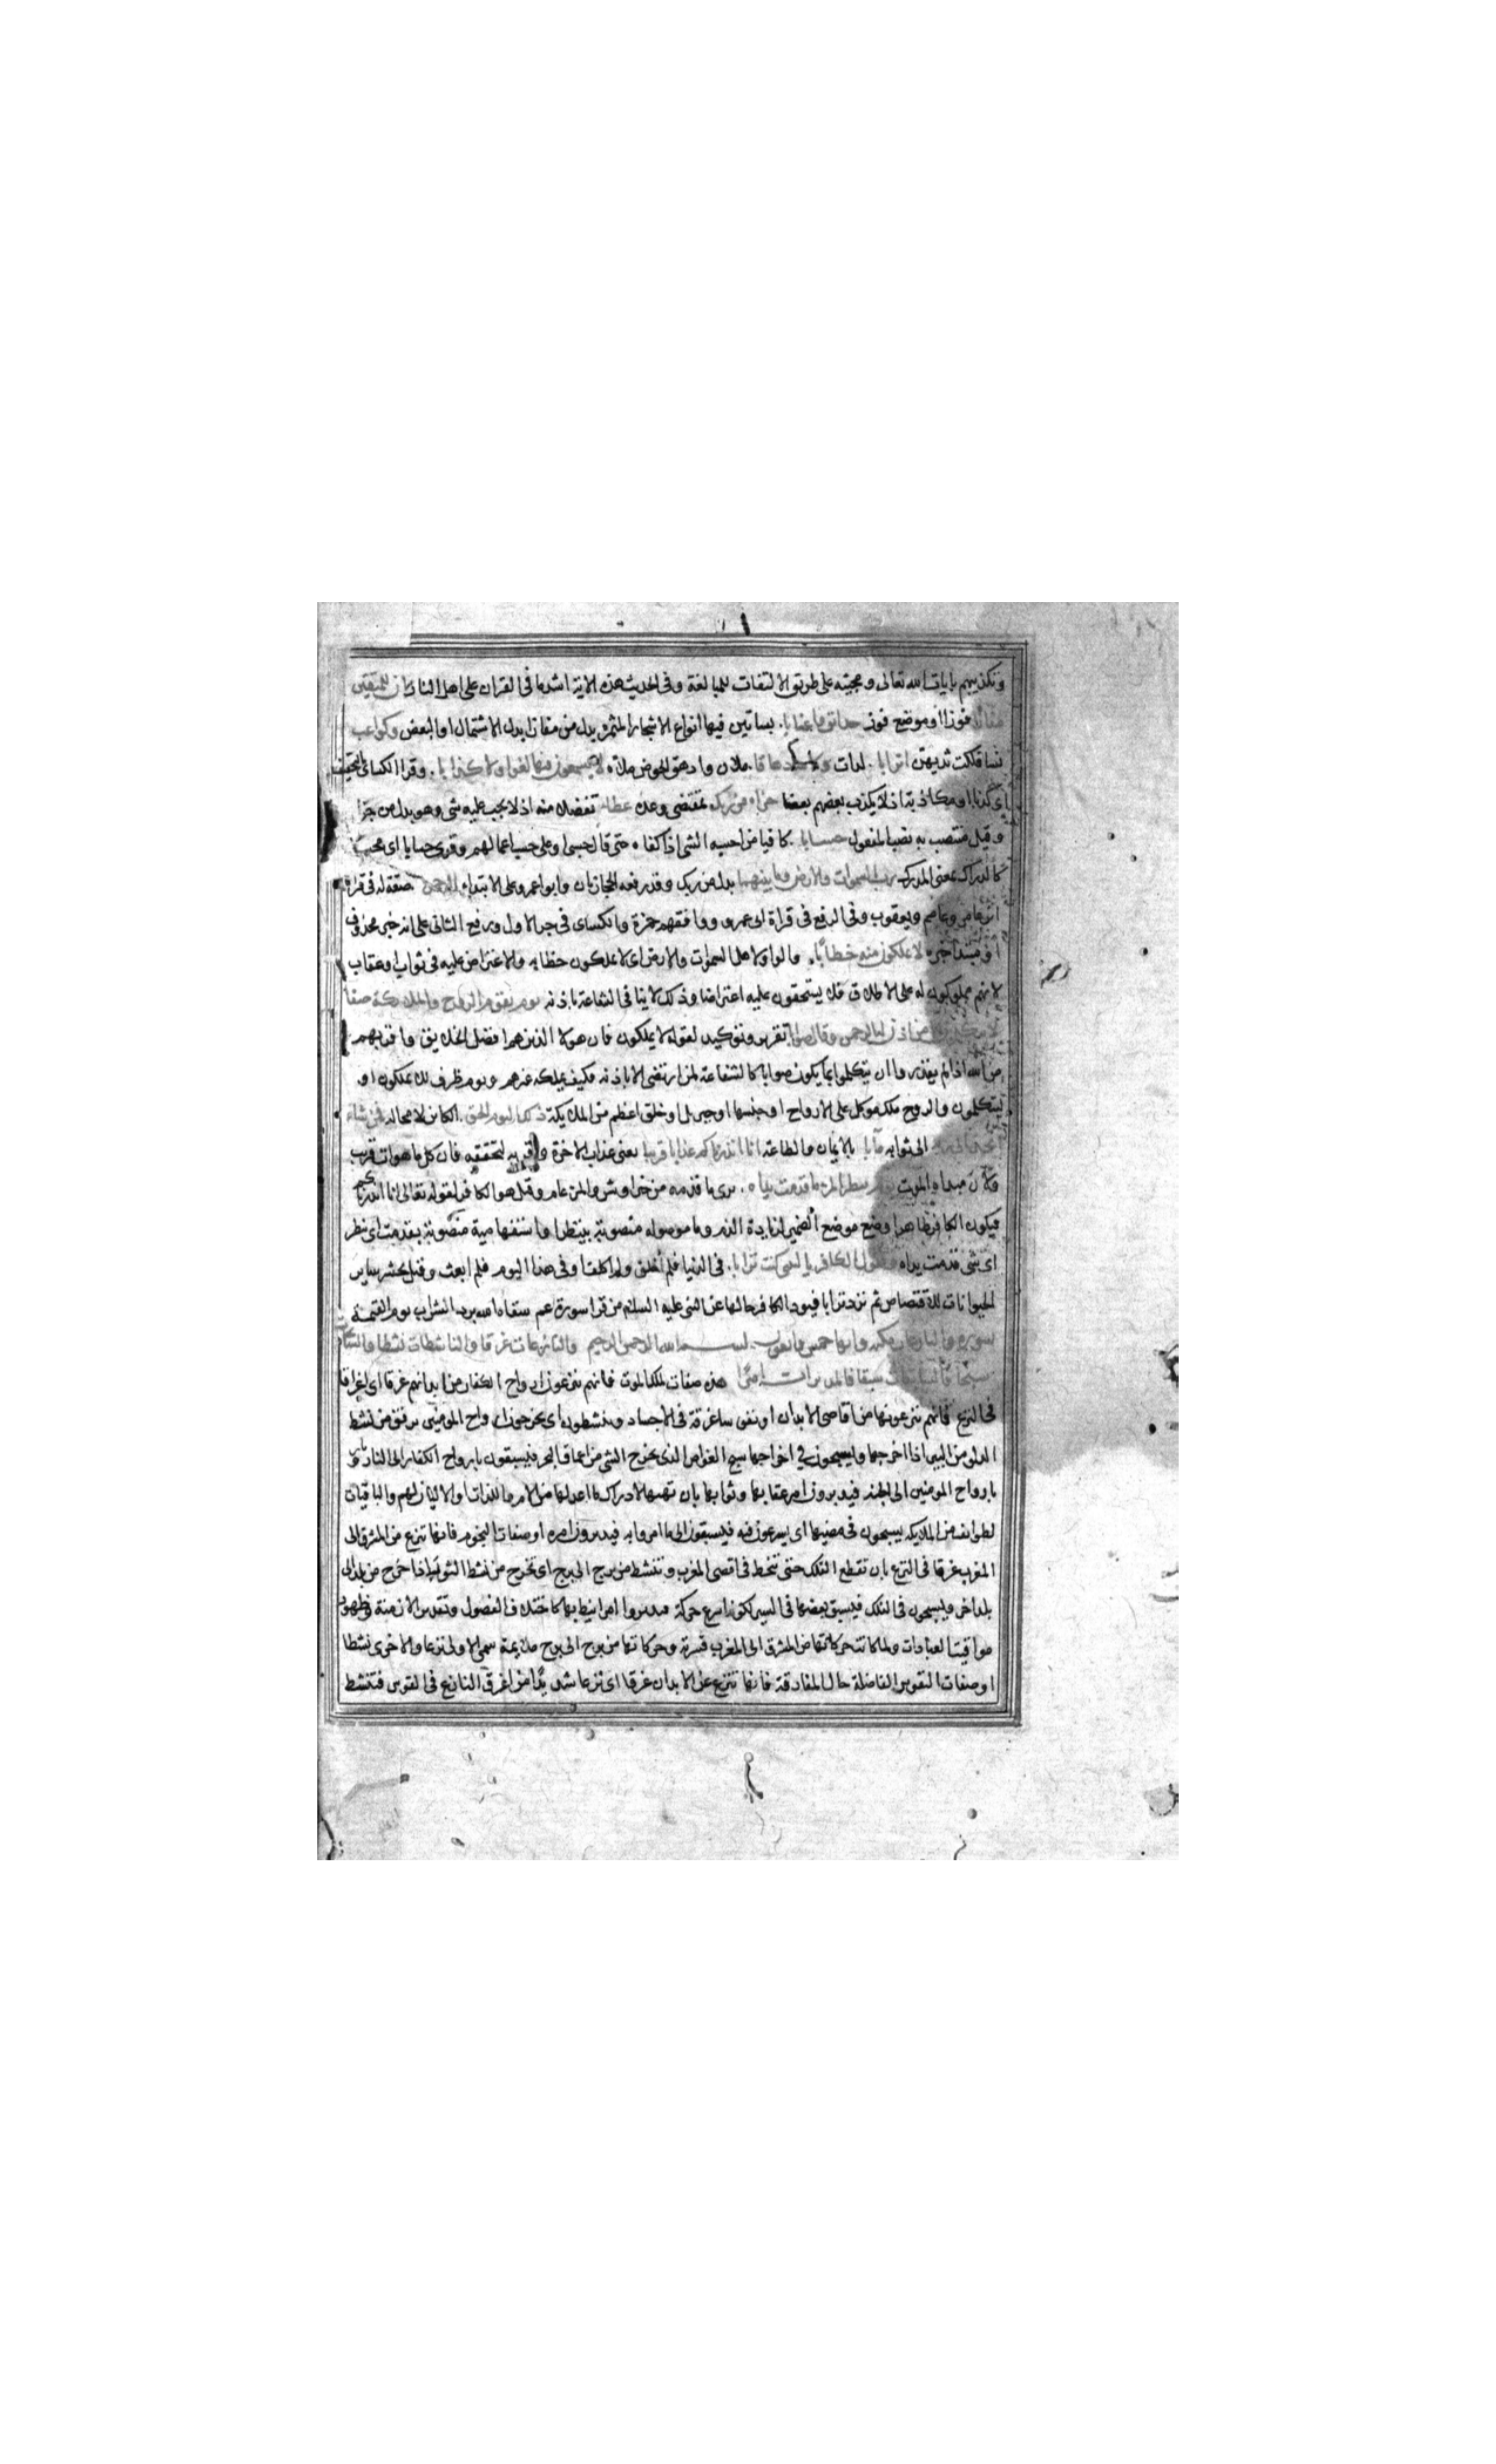 وتكذيبهم بايات الله تعالى ومجيئه على طريق الالتفات للمبالغة وفى الحديث هذه الاية اشد ما فى القران على اهل النار ان للمتقين
مفازا فوزا او موضع فوز حدائق واعنابا. بساتين فيها انواع الاشجار المثمر بدل من مفازا بدل الاشتمال او البعض وكواعب
نسا فلكت ثديهن اترابا. لدات وكاسا دهاقا. ملان وادهق الحوض ملاه لا يسمعون فيها لغوا ولا كذابا. وقرا الكسائى بالتخفيف
اى كذبا او مكاذبة اذ لا يكذب بعضهم بعضا جزاء من ربك بمقتضى وعده عطاء تفضلا منه اذ لا يجب عليه شى وهو بدل من جزا
وقيل منتصب به نصب المفعول حسابا. كافيا من احسبه الشى اذا كفاه حتى قال حسبى او على حسب اعمالهم وقرى حسابا اى محسبا
كالدراك بمعنى المدرك رب السموات والارض وما بينهما بدل من ربك وقد رفعه الحجازيان وابو عمرو على الابتداء الرحمن صفة له فى قراة
ابن عامر وعاصم ويعقوب وفى الرفع فى قراة ابى عمرو ووافقهم حمزة والكساى فى جر الاول ورفع الثانى على انه خبر محذوف
او مبتدا خبره لا يملكون منه خطابا. والواو لاهل السموات والارض اى لا يملكون خطابه والاعتراض عليه فى ثواب او عقاب
لانهم مملوكون له على الاطلاق فلا يستحقون عليه اعتراضا وذلك لا ينا فى الشفاعة باذنه يوم يقوم الروح والملايكة صفا
لا يتكلمون الا من اذن له الرحمن وقال صوابا تقرير وتوكيد لقوله لا يملكون فان هولا الذين هم افضل الخلايق واقربهم
من الله اذا لم يقدروا ان يتكلموا بما يكون صوابا كالشفاعة لمن ارتضى الا باذنه فكيف يملكه غيرهم ويوم ظرف للا يملكون او
ليتكلمون والروح ملك موكل على الارواح او جنسها او جبريل او خلق اعظم من الملايكة ذلك اليوم الحق. الكاين لا محاله فمن شاء
اتخذ الى ربه الى ثوابه مآبا بالايمان والطاعة انا انذرناكم عذابا قريبا يعنى عذاب الاخرة وقربه لتحققه فان كل ما هو ات قريب
ولان مبداه الموت يوم ينظر المرء ما قدمت يداه. يرى ما قدمه من خير او شر والمرء عام وقيل هو الكافر لقوله تعالى انا انذرناكم
فيكون الكافر ظاهرا وضع موضع الضمير لزيادة الذم وما موصوله منصوبة بينظر او استفهامية منصوبة بقدمت اى ينظر
اى شى قدمت يداه ويقول الكافر يا ليتنى كنت ترابا. فى الدنيا فلم اخلق ولم اكلف او فى هذا اليوم فلم ابعث وقيل يحشر ساير
الحيوانات للاقتصاص ثم ترد ترابا فيود الكافر حالها عن النبى عليه السلام من قرا سورة عم سقاه الله برد الشراب يوم القيمة
سورة والنازعات مكيه وايها خمس واربعون. بسم الله الرحمن الرحيم والنازعات غرقا والناشطات نشطا والسابحات
سبحا فالسابقات سبقا فالمدبرات امرا هذه صفات ملك الموت فانهم ينزعون ارواح الكفار من ابدانهم غرقا اى اغراقا
فى النزع فانهم ينزعونها من اقاصى الابدان او نفوسا غرقة فى الاجساد وينشطون اى يخرجون ارواح المومنين برفق من نشط
الدلو من البير اذا اخرجها ويسبحون فى اخراجها سبح الغواص الذى يخرج الشى من اعماق البحر فيسبقون بارواح الكفار الى النار و
بارواح المومنين الى الجنه فيدبرون امر عقابها وثوابها بان تهيئها لادراك ما اعد لها من الامر واللذات او الاليان لهم والباقيات
لطوايف من الملايكه يسبحون فى مضيها اى يسرعون فيه فيسبقون الى ما امروا به فيدبرون امره او صفات النجوم فانها تنزع من المشرق الى
المغرب غرقا فى النزع بان تقطع الفلك حتى تنحط فى اقصى المغرب وتنشط من برج الى برج اى تخرج من نشط الثور اذا خرج من بلد الى
بلد اخر ويسبحون فى الفلك فيسبق بعضها فى السير لكونه اسرع حركة فيدبروا امرا نيط بها كاختلاف الفصول وتقدير الازمنة وظهور
مواقيت العبادات ولما كانت حركاتها من المشرق الى المغرب قسرية وحركاتها من برج الى برج ملايمة سمى الاولى نزعا والاخرى نشطا
او صفات النفوس الفاضلة حال المفارقة فانها تنزع عن الابدان غرقا اى نزعا شديدا من اغرق النازع فى القوس فتنشط